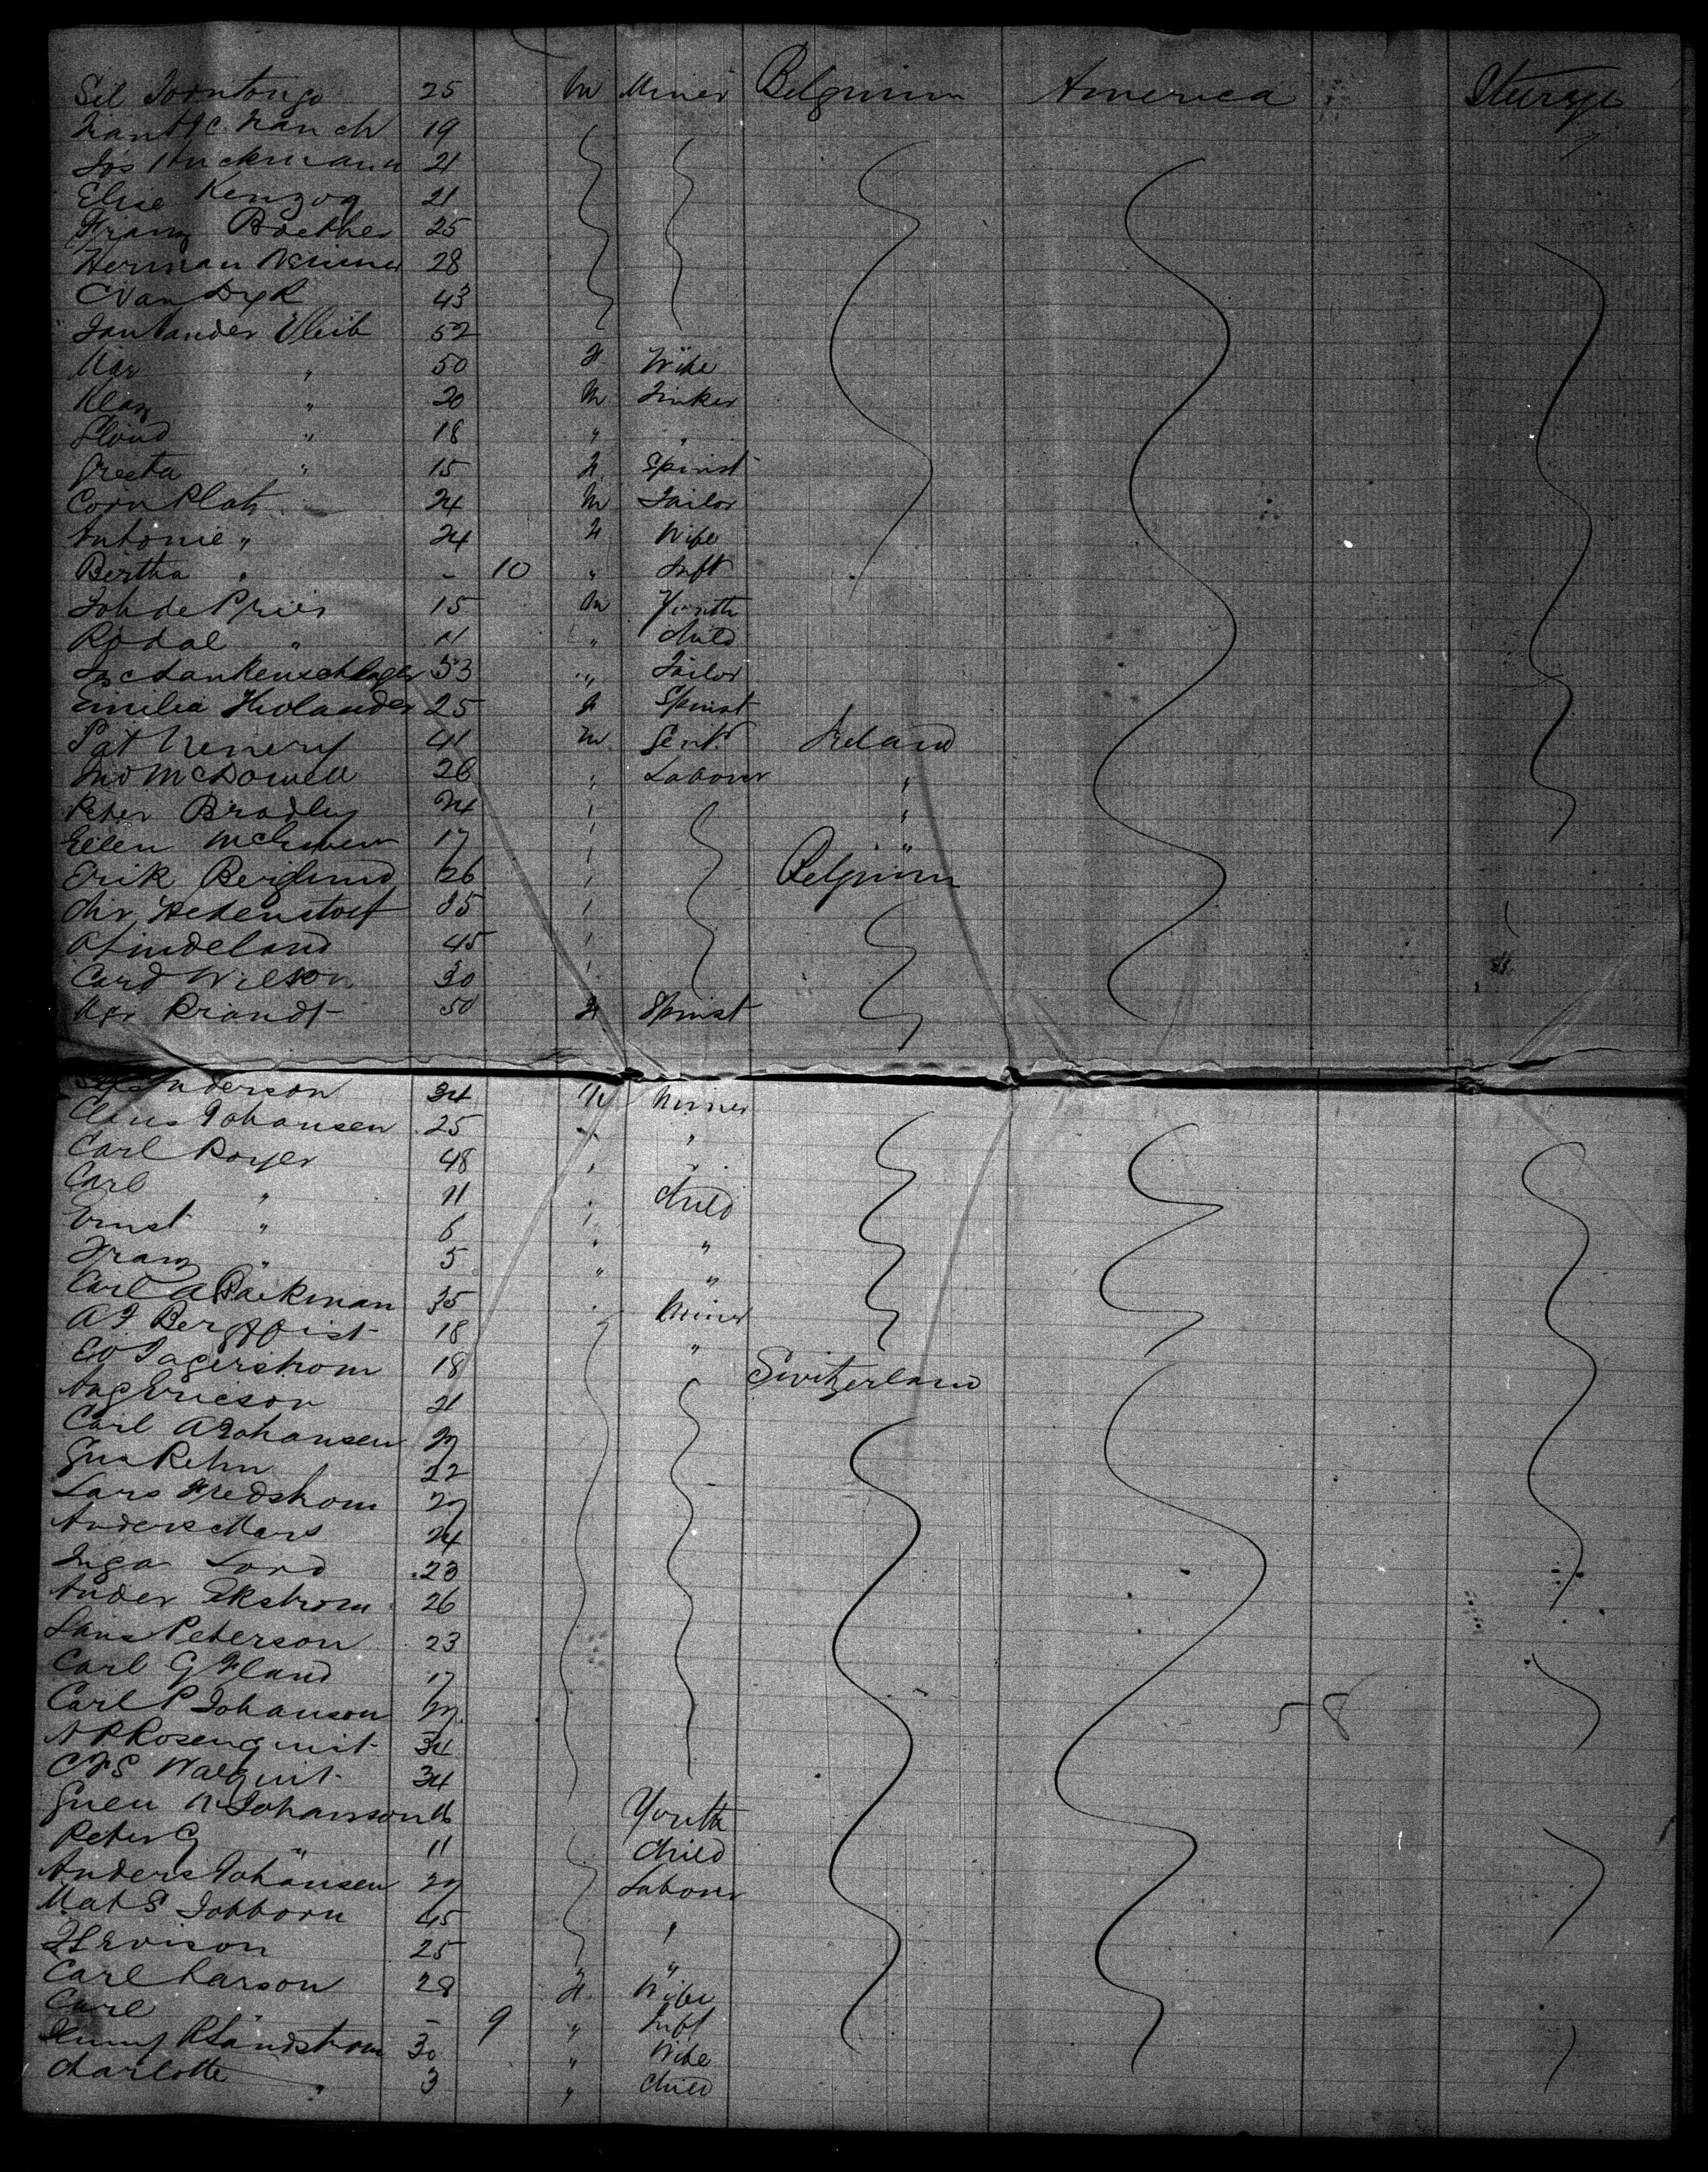 Sil Torntongo 25 M Miner Belgium America Sturge
19
Jos Huckmann 21
Elise Kenzog 21
Franz Boether 25
Herman 28
C Van Dyk 43
Jan Vander Vleib 52
Mar " 50 F Wife
Klaz " 20 M Tinker
" 18 " "
Greeta " 15 F Spinst
Corn Plats 24 M Tailor
Antonie " 24 F Wife
Bertha " - 10 " Inft
Joh de Pries 15 M Youth
Rodal " 11 " Child
33 " Tailor
Emilia Holander 25 F Spinst
Pat Nenery 41 M Gent. Ireland
Jno McDowell 26 " Labour "
Peter Bradley 24 " "
Ellen 17 " "
Erik Berglund 26 " Belgium
Chr Hedenstorf 35 "
A Lindeland 45 "
Card Wilson 30 "
Mgr Brandt 50 F Spinst
Anderson 34 M Miner
Claus Johansen 25 " "
Carl Royer 48 " "
Carl " 11 " Child
Ernst " 6 " "
Franz " 5 " "
Carl A Backman 35 " Miner
A F Bergqvist 18 "
Ed Jagerstrom 18 Switzerland
Aug Ericson 21
Carl A Johansen 27
Gus Rehn 22
Lars Fredstrom 27
Anders Mars 24
Inga Lord 23
Ander Ekstrom 26
Lans Peterson 23
Carl G Fland 17
Carl P Johanson 27 58
A P Rosenquist 34
C F S Walquist 34
N Johansson 16 Youth
Peter G " 11 Child
Anders Johansen 27 Labour
Mat S Jobborn 45 "
25 "
Carl Larson 28 F Wife
Carl " - 9 " Inft
P Landstrom 30 " Wife
Charlotte " 3 " Child